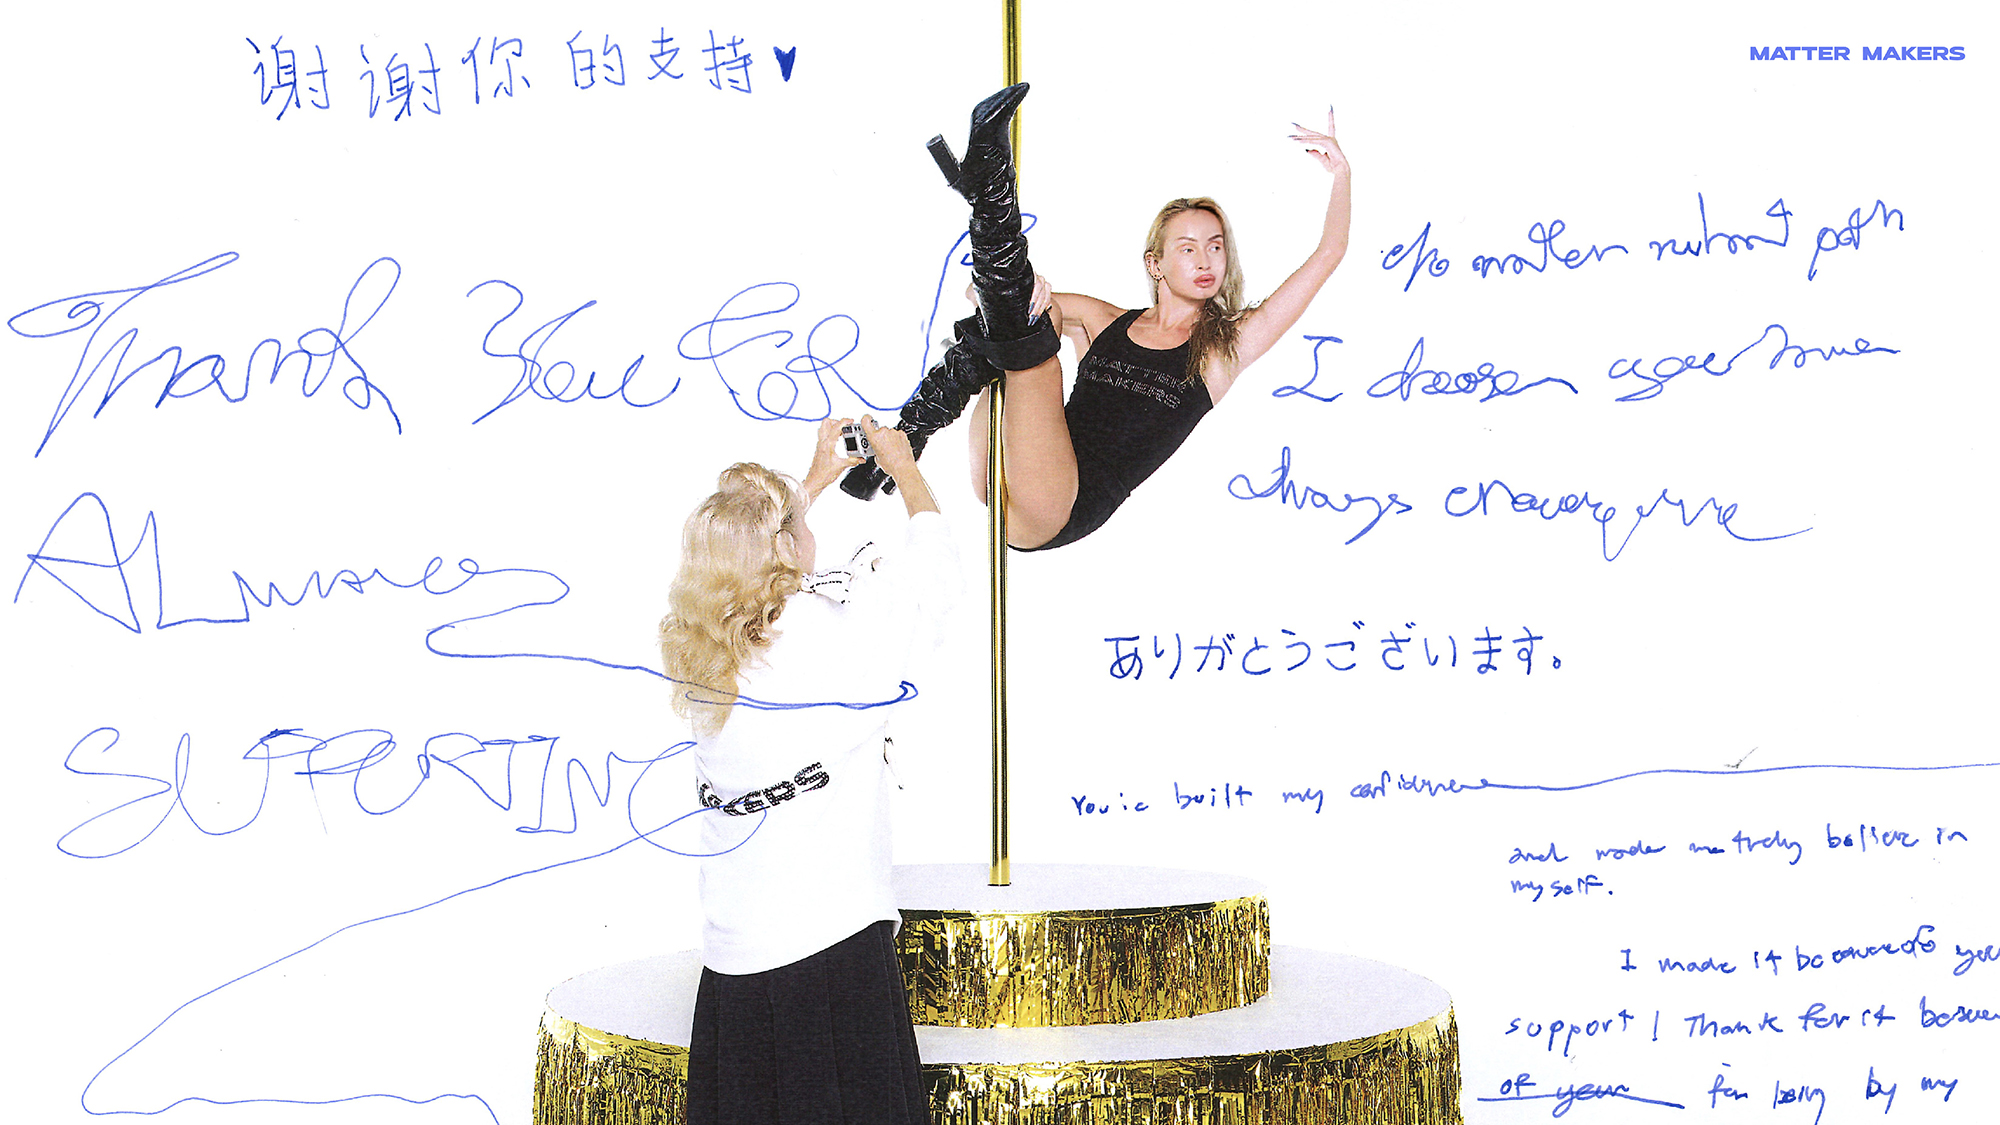 谢谢你的支持♥
MATTER MAKERS
Thank You For
ALways
SUPPORTING
MATTER
MAKERS
KERS
No matter what path
I choose your
always encourage me
ありがとうございます。
built my confidence
and made me truly believe in
myself.
I made it because of you
support! Thank for it
of your for being by my